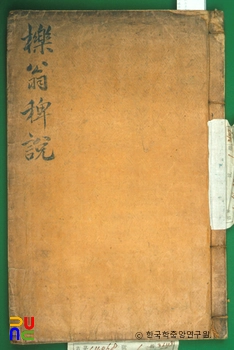 櫟翁稗說
ⓒ한국학중앙연구원